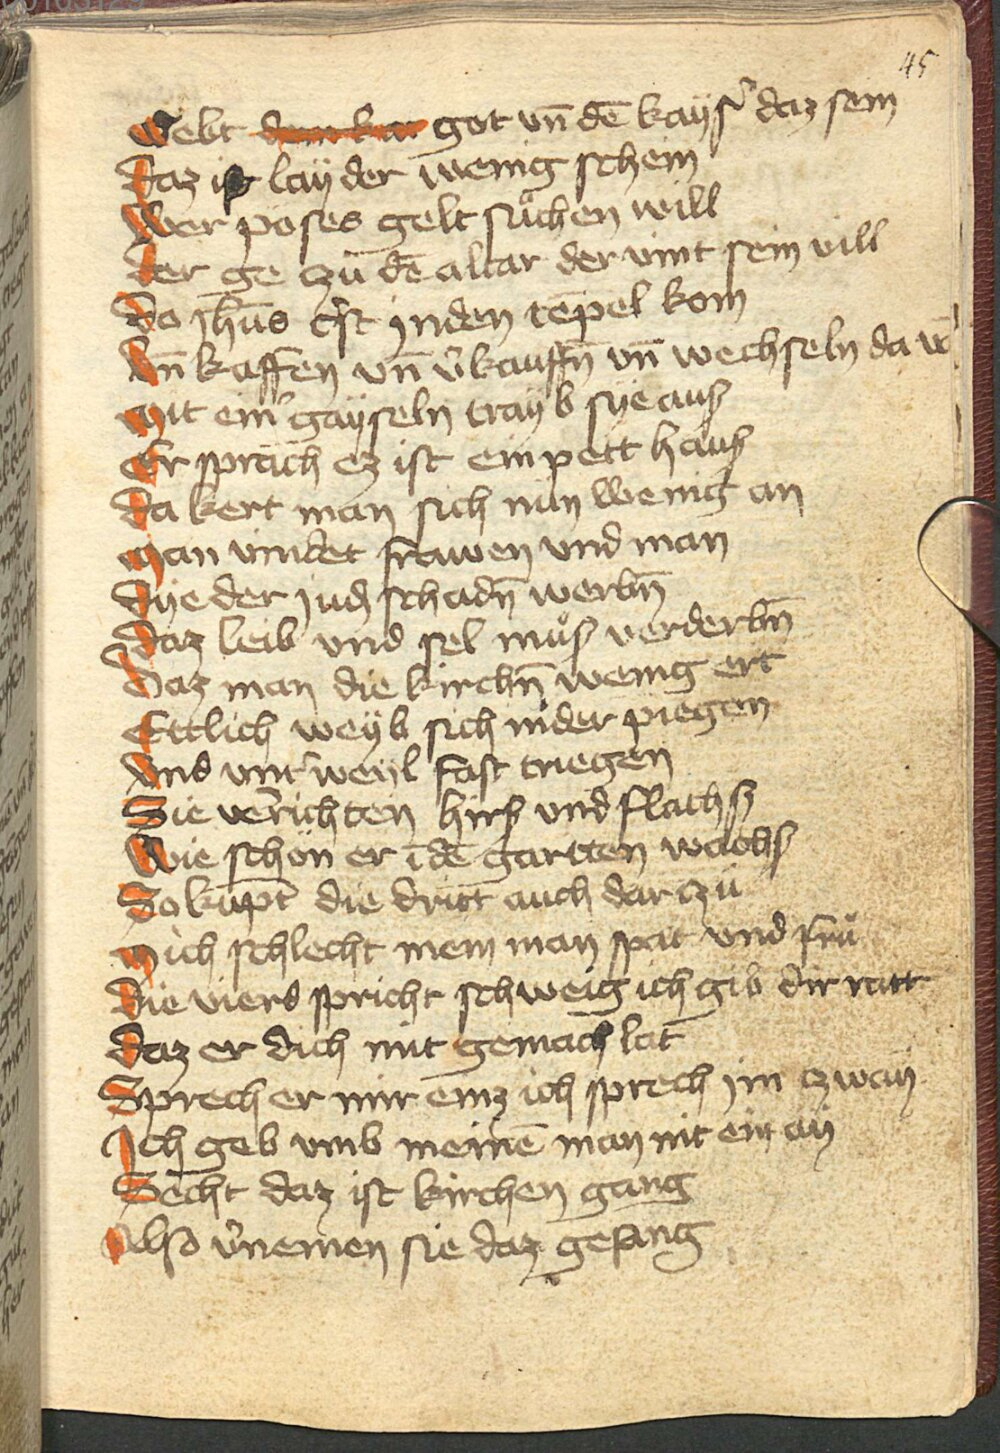 45
Gebt dem kai got vn̄ dē kaysˀ daz sein
Daz ist layder wenig schein
Wer poses gelt sůchen will
der ge czu dē altar der vint sein vill
Do Jhūs erst jnden tēpel kom
Vn̄ kaffen vn̄ v̄kauffn̄ vn̄ wechseln da
mit einˀ gayseln trayb sye aus
Er sprach ez ist ein pett haus
Da kert man sich nun wenig an
man vindet frawen vnd man
Dye der judz schadn̄ werbn̄
Daz leib vnd sel můs verderbn̄
Daz man die kirchn̄ wenig ert
Ettlich weyb sich nider piegen
Vnd vntˀ weyl fast triegen
Sie verichten hirs vnd flachs
Wie schon er ī dē gartten wachs
So kūpt die dritt auch dar czu
Mich schlecht mein man spat vnd frů
Die vierd spricht schweig ich gib dir ratt
Daz er dich mit gemach lat
Sprech er mir einz ich sprech jm czway
Ich geb vmb meinē man nit ein ay
Secht daz ist kirchen gang
Also v̄nemen sie daz gesang